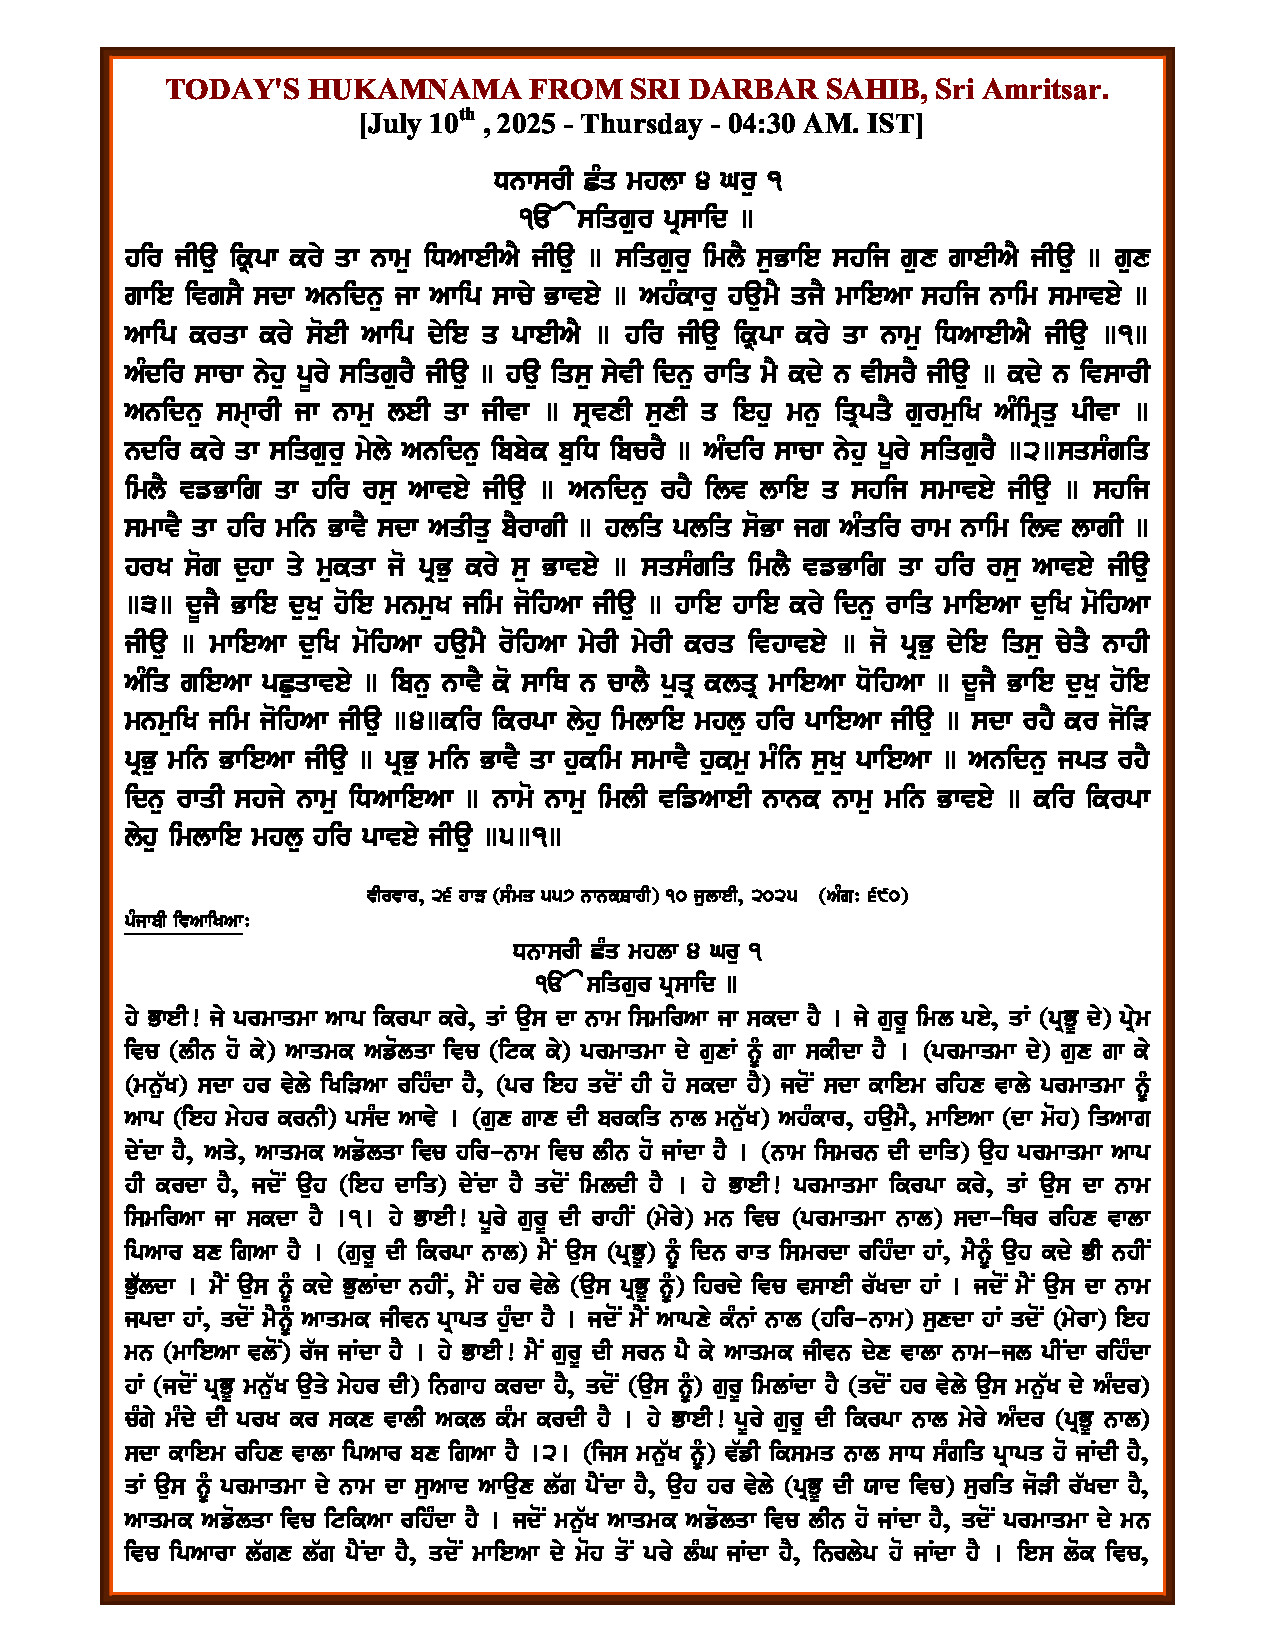 TODAY'S HUKAMNAMA FROM SRI DARBAR SAHIB, Sri Amritsar.
[July 10th , 2025 - Thursday - 04:30 AM. IST]
ਧਨਾਸਰੀ ਛੰਤ ਮਹਲਾ ੪ ਘਰੁ ੧
ੴ ਸਤਿਗੁਰ ਪ੍ਰਸਾਦਿ ॥
ਹਰਿ ਜੀਉ ਕ੍ਰਿਪਾ ਕਰੇ ਤਾ ਨਾਮੁ ਧਿਆਈਐ ਜੀਉ ॥ ਸਤਿਗੁਰੁ ਮਿਲੈ ਸੁਭਾਇ ਸਹਜਿ ਗੁਣ ਗਾਈਐ ਜੀਉ ॥ ਗੁਣ
ਗਾਇ ਵਿਗਸੈ ਸਦਾ ਅਨਦਿਨੁ ਜਾ ਆਪਿ ਸਾਚੇ ਭਾਵਏ ॥ ਅਹੰਕਾਰੁ ਹਉਮੈ ਤਜੈ ਮਾਇਆ ਸਹਜਿ ਨਾਮਿ ਸਮਾਵਏ ॥
ਆਪਿ ਕਰਤਾ ਕਰੇ ਸੋਈ ਆਪਿ ਦੇਇ ਤ ਪਾਈਐ ॥ ਹਰਿ ਜੀਉ ਕ੍ਰਿਪਾ ਕਰੇ ਤਾ ਨਾਮੁ ਧਿਆਈਐ ਜੀਉ ॥੧॥
ਅੰਦਰਿ ਸਾਚਾ ਨੇਹੁ ਪੂਰੇ ਸਤਿਗੁਰੈ ਜੀਉ ॥ ਹਉ ਤਿਸੁ ਸੇਵੀ ਦਿਨੁ ਰਾਤਿ ਮੈ ਕਦੇ ਨ ਵੀਸਰੈ ਜੀਉ ॥ ਕਦੇ ਨ ਵਿਸਾਰੀ
ਅਨਦਿਨੁ ਸਮ੍ਹਾਰੀ ਜਾ ਨਾਮੁ ਲਈ ਤਾ ਜੀਵਾ ॥ ਸ੍ਰਵਣੀ ਸੁਣੀ ਤ ਇਹੁ ਮਨੁ ਤ੍ਰਿਪਤੈ ਗੁਰਮੁਖਿ ਅੰਮ੍ਰਿਤੁ ਪੀਵਾ ॥
ਨਦਰਿ ਕਰੇ ਤਾ ਸਤਿਗੁਰੁ ਮੇਲੇ ਅਨਦਿਨੁ ਬਿਬੇਕ ਬੁਧਿ ਬਿਚਰੈ ॥ ਅੰਦਰਿ ਸਾਚਾ ਨੇਹੁ ਪੂਰੇ ਸਤਿਗੁਰੈ ॥੨॥ਸਤਸੰਗਤਿ
ਮਿਲੈ ਵਡਭਾਗਿ ਤਾ ਹਰਿ ਰਸੁ ਆਵਏ ਜੀਉ ॥ ਅਨਦਿਨੁ ਰਹੈ ਲਿਵ ਲਾਇ ਤ ਸਹਜਿ ਸਮਾਵਏ ਜੀਉ ॥ ਸਹਜਿ
ਸਮਾਵੈ ਤਾ ਹਰਿ ਮਨਿ ਭਾਵੈ ਸਦਾ ਅਤੀਤੁ ਬੈਰਾਗੀ ॥ ਹਲਤਿ ਪਲਤਿ ਸੋਭਾ ਜਗ ਅੰਤਰਿ ਰਾਮ ਨਾਮਿ ਲਿਵ ਲਾਗੀ ॥
ਹਰਖ ਸੋਗ ਦੁਹਾ ਤੇ ਮੁਕਤਾ ਜੋ ਪ੍ਰਭੁ ਕਰੇ ਸੁ ਭਾਵਏ ॥ ਸਤਸੰਗਤਿ ਮਿਲੈ ਵਡਭਾਗਿ ਤਾ ਹਰਿ ਰਸੁ ਆਵਏ ਜੀਉ
॥੩॥ ਦੂਜੈ ਭਾਇ ਦੁਖੁ ਹੋਇ ਮਨਮੁਖ ਜਮਿ ਜੋਹਿਆ ਜੀਉ ॥ ਹਾਇ ਹਾਇ ਕਰੇ ਦਿਨੁ ਰਾਤਿ ਮਾਇਆ ਦੁਖਿ ਮੋਹਿਆ
ਜੀਉ ॥ ਮਾਇਆ ਦੁਖਿ ਮੋਹਿਆ ਹਉਮੈ ਰੋਹਿਆ ਮੇਰੀ ਮੇਰੀ ਕਰਤ ਵਿਹਾਵਏ ॥ ਜੋ ਪ੍ਰਭੁ ਦੇਇ ਤਿਸੁ ਚੇਤੈ ਨਾਹੀ
ਅੰਤਿ ਗਇਆ ਪਛੁਤਾਵਏ ॥ ਬਿਨੁ ਨਾਵੈ ਕੋ ਸਾਥਿ ਨ ਚਾਲੈ ਪੁਤ੍ਰ ਕਲਤ੍ਰ ਮਾਇਆ ਧੋਹਿਆ ॥ ਦੂਜੈ ਭਾਇ ਦੁਖੁ ਹੋਇ
ਮਨਮੁਖਿ ਜਮਿ ਜੋਹਿਆ ਜੀਉ ॥੪॥ਕਰਿ ਕਿਰਪਾ ਲੇਹੁ ਮਿਲਾਇ ਮਹਲੁ ਹਰਿ ਪਾਇਆ ਜੀਉ ॥ ਸਦਾ ਰਹੈ ਕਰ ਜੋੜਿ
ਪ੍ਰਭੁ ਮਨਿ ਭਾਇਆ ਜੀਉ ॥ ਪ੍ਰਭੁ ਮਨਿ ਭਾਵੈ ਤਾ ਹੁਕਮਿ ਸਮਾਵੈ ਹੁਕਮੁ ਮੰਨਿ ਸੁਖੁ ਪਾਇਆ ॥ ਅਨਦਿਨੁ ਜਪਤ ਰਹੈ
ਦਿਨੁ ਰਾਤੀ ਸਹਜੇ ਨਾਮੁ ਧਿਆਇਆ ॥ ਨਾਮੋ ਨਾਮੁ ਮਿਲੀ ਵਡਿਆਈ ਨਾਨਕ ਨਾਮੁ ਮਨਿ ਭਾਵਏ ॥ ਕਰਿ ਕਿਰਪਾ
ਲੇਹੁ ਮਿਲਾਇ ਮਹਲੁ ਹਰਿ ਪਾਵਏ ਜੀਉ ॥੫॥੧॥
ਵੀਰਵਾਰ, ੨੬ ਹਾੜ (ਸੰਮਤ ੫੫੭ ਨਾਨਕਸ਼ਾਹੀ) ੧੦ ਜੁਲਾਈ, ੨੦੨੫ (ਅੰਗ: ੬੯੦)
ਪੰਜਾਬੀ ਵਿਆਖਿਆ:
ਧਨਾਸਰੀ ਛੰਤ ਮਹਲਾ ੪ ਘਰੁ ੧
ੴ ਸਤਿਗੁਰ ਪ੍ਰਸਾਦਿ ॥
ਹੇ ਭਾਈ! ਜੇ ਪਰਮਾਤਮਾ ਆਪ ਕਿਰਪਾ ਕਰੇ, ਤਾਂ ਉਸ ਦਾ ਨਾਮ ਸਿਮਰਿਆ ਜਾ ਸਕਦਾ ਹੈ । ਜੇ ਗੁਰੂ ਮਿਲ ਪਏ, ਤਾਂ (ਪ੍ਰਭੂ ਦੇ) ਪ੍ਰੇਮ
ਵਿਚ (ਲੀਨ ਹੋ ਕੇ) ਆਤਮਕ ਅਡੋਲਤਾ ਵਿਚ (ਟਿਕ ਕੇ) ਪਰਮਾਤਮਾ ਦੇ ਗੁਣਾਂ ਨੂੰ ਗਾ ਸਕੀਦਾ ਹੈ । (ਪਰਮਾਤਮਾ ਦੇ) ਗੁਣ ਗਾ ਕੇ
(ਮਨੁੱਖ) ਸਦਾ ਹਰ ਵੇਲੇ ਖਿੜਿਆ ਰਹਿੰਦਾ ਹੈ, (ਪਰ ਇਹ ਤਦੋਂ ਹੀ ਹੋ ਸਕਦਾ ਹੈ) ਜਦੋਂ ਸਦਾ ਕਾਇਮ ਰਹਿਣ ਵਾਲੇ ਪਰਮਾਤਮਾ ਨੂੰ
ਆਪ (ਇਹ ਮੇਹਰ ਕਰਨੀ) ਪਸੰਦ ਆਵੇ । (ਗੁਣ ਗਾਣ ਦੀ ਬਰਕਤਿ ਨਾਲ ਮਨੁੱਖ) ਅਹੰਕਾਰ, ਹਉਮੈ, ਮਾਇਆ (ਦਾ ਮੋਹ) ਤਿਆਗ
ਦੇਂਦਾ ਹੈ, ਅਤੇ, ਆਤਮਕ ਅਡੋਲਤਾ ਵਿਚ ਹਰਿ-ਨਾਮ ਵਿਚ ਲੀਨ ਹੋ ਜਾਂਦਾ ਹੈ । (ਨਾਮ ਸਿਮਰਨ ਦੀ ਦਾਤਿ) ਉਹ ਪਰਮਾਤਮਾ ਆਪ
ਹੀ ਕਰਦਾ ਹੈ, ਜਦੋਂ ਉਹ (ਇਹ ਦਾਤਿ) ਦੇਂਦਾ ਹੈ ਤਦੋਂ ਮਿਲਦੀ ਹੈ । ਹੇ ਭਾਈ! ਪਰਮਾਤਮਾ ਕਿਰਪਾ ਕਰੇ, ਤਾਂ ਉਸ ਦਾ ਨਾਮ
ਸਿਮਰਿਆ ਜਾ ਸਕਦਾ ਹੈ ।੧। ਹੇ ਭਾਈ! ਪੂਰੇ ਗੁਰੂ ਦੀ ਰਾਹੀਂ (ਮੇਰੇ) ਮਨ ਵਿਚ (ਪਰਮਾਤਮਾ ਨਾਲ) ਸਦਾ-ਥਿਰ ਰਹਿਣ ਵਾਲਾ
ਪਿਆਰ ਬਣ ਗਿਆ ਹੈ । (ਗੁਰੂ ਦੀ ਕਿਰਪਾ ਨਾਲ) ਮੈਂ ਉਸ (ਪ੍ਰਭੂ) ਨੂੰ ਦਿਨ ਰਾਤ ਸਿਮਰਦਾ ਰਹਿੰਦਾ ਹਾਂ, ਮੈਨੂੰ ਉਹ ਕਦੇ ਭੀ ਨਹੀਂ
ਭੁੱਲਦਾ । ਮੈਂ ਉਸ ਨੂੰ ਕਦੇ ਭੁਲਾਂਦਾ ਨਹੀਂ, ਮੈਂ ਹਰ ਵੇਲੇ (ਉਸ ਪ੍ਰਭੂ ਨੂੰ) ਹਿਰਦੇ ਵਿਚ ਵਸਾਈ ਰੱਖਦਾ ਹਾਂ । ਜਦੋਂ ਮੈਂ ਉਸ ਦਾ ਨਾਮ
ਜਪਦਾ ਹਾਂ, ਤਦੋਂ ਮੈਨੂੰ ਆਤਮਕ ਜੀਵਨ ਪ੍ਰਾਪਤ ਹੁੰਦਾ ਹੈ । ਜਦੋਂ ਮੈਂ ਆਪਣੇ ਕੰਨਾਂ ਨਾਲ (ਹਰਿ-ਨਾਮ) ਸੁਣਦਾ ਹਾਂ ਤਦੋਂ (ਮੇਰਾ) ਇਹ
ਮਨ (ਮਾਇਆ ਵਲੋਂ) ਰੱਜ ਜਾਂਦਾ ਹੈ । ਹੇ ਭਾਈ! ਮੈਂ ਗੁਰੂ ਦੀ ਸਰਨ ਪੈ ਕੇ ਆਤਮਕ ਜੀਵਨ ਦੇਣ ਵਾਲਾ ਨਾਮ-ਜਲ ਪੀਂਦਾ ਰਹਿੰਦਾ
ਹਾਂ (ਜਦੋਂ ਪ੍ਰਭੂ ਮਨੁੱਖ ਉਤੇ ਮੇਹਰ ਦੀ) ਨਿਗਾਹ ਕਰਦਾ ਹੈ, ਤਦੋਂ (ਉਸ ਨੂੰ) ਗੁਰੂ ਮਿਲਾਂਦਾ ਹੈ (ਤਦੋਂ ਹਰ ਵੇਲੇ ਉਸ ਮਨੁੱਖ ਦੇ ਅੰਦਰ)
ਚੰਗੇ ਮੰਦੇ ਦੀ ਪਰਖ ਕਰ ਸਕਣ ਵਾਲੀ ਅਕਲ ਕੰਮ ਕਰਦੀ ਹੈ । ਹੇ ਭਾਈ! ਪੂਰੇ ਗੁਰੂ ਦੀ ਕਿਰਪਾ ਨਾਲ ਮੇਰੇ ਅੰਦਰ (ਪ੍ਰਭੂ ਨਾਲ)
ਸਦਾ ਕਾਇਮ ਰਹਿਣ ਵਾਲਾ ਪਿਆਰ ਬਣ ਗਿਆ ਹੈ ।੨। (ਜਿਸ ਮਨੁੱਖ ਨੂੰ) ਵੱਡੀ ਕਿਸਮਤ ਨਾਲ ਸਾਧ ਸੰਗਤਿ ਪ੍ਰਾਪਤ ਹੋ ਜਾਂਦੀ ਹੈ,
ਤਾਂ ਉਸ ਨੂੰ ਪਰਮਾਤਮਾ ਦੇ ਨਾਮ ਦਾ ਸੁਆਦ ਆਉਣ ਲੱਗ ਪੈਂਦਾ ਹੈ, ਉਹ ਹਰ ਵੇਲੇ (ਪ੍ਰਭੂ ਦੀ ਯਾਦ ਵਿਚ) ਸੁਰਤਿ ਜੋੜੀ ਰੱਖਦਾ ਹੈ,
ਆਤਮਕ ਅਡੋਲਤਾ ਵਿਚ ਟਿਕਿਆ ਰਹਿੰਦਾ ਹੈ । ਜਦੋਂ ਮਨੁੱਖ ਆਤਮਕ ਅਡੋਲਤਾ ਵਿਚ ਲੀਨ ਹੋ ਜਾਂਦਾ ਹੈ, ਤਦੋਂ ਪਰਮਾਤਮਾ ਦੇ ਮਨ
ਵਿਚ ਪਿਆਰਾ ਲੱਗਣ ਲੱਗ ਪੈਂਦਾ ਹੈ, ਤਦੋਂ ਮਾਇਆ ਦੇ ਮੋਹ ਤੋਂ ਪਰੇ ਲੰਘ ਜਾਂਦਾ ਹੈ, ਨਿਰਲੇਪ ਹੋ ਜਾਂਦਾ ਹੈ । ਇਸ ਲੋਕ ਵਿਚ,